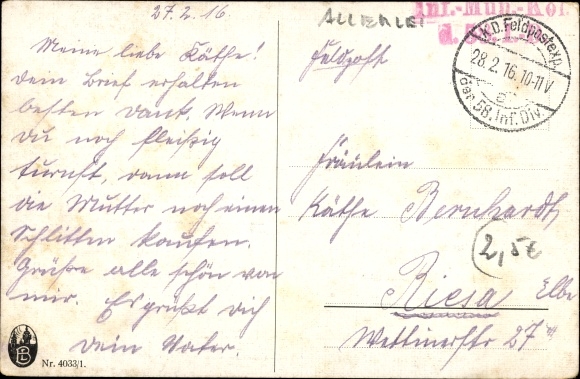 27.2.16
Meine liebe Käthe!
Dein Brief erhalten
besten Dank. Wenn
Du noch fleißig
turnst, dann soll
die Mutter noch einen
Schlitten kaufen.
Grüße alle schön von
mir. Es grüßt Dich
Dein Vater.
Nr. 4033/1.
ALLERLEI
Inf.-Mun.-Kol.
d. 58.
K.D. Feldpostexp.
28.2.16. 10-11 V
der 58. Inf. Div.
Feldpost
Fräulein
Käthe Bernhardt,
2,50
Riesa Elbe
Wettinerstr 27